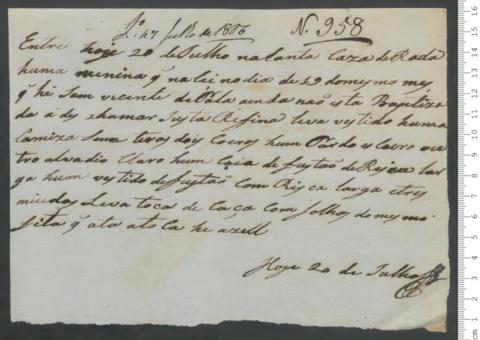 Lº 47 Julho de 1886 N. 958
Entre hoje 20 de Julho na Santa Caza de Roda
huma menina q naceu no dia de 19 do mesmo mes
q he Sam vicente de Pala ainda não esta Baptiza
da a de xhamar Justa Rofina leva vestido huma
Camiza huns coeros hum Pardo es Coero ou
tro alvadio Claro hum Caia de fustão de Risca lar
ga hum vestido de fustão Com Risca larga e tres
miudas Leva toca de Caça com folhos do mesmo
fita q ata a toca he azell
Hoje 20 de Julho